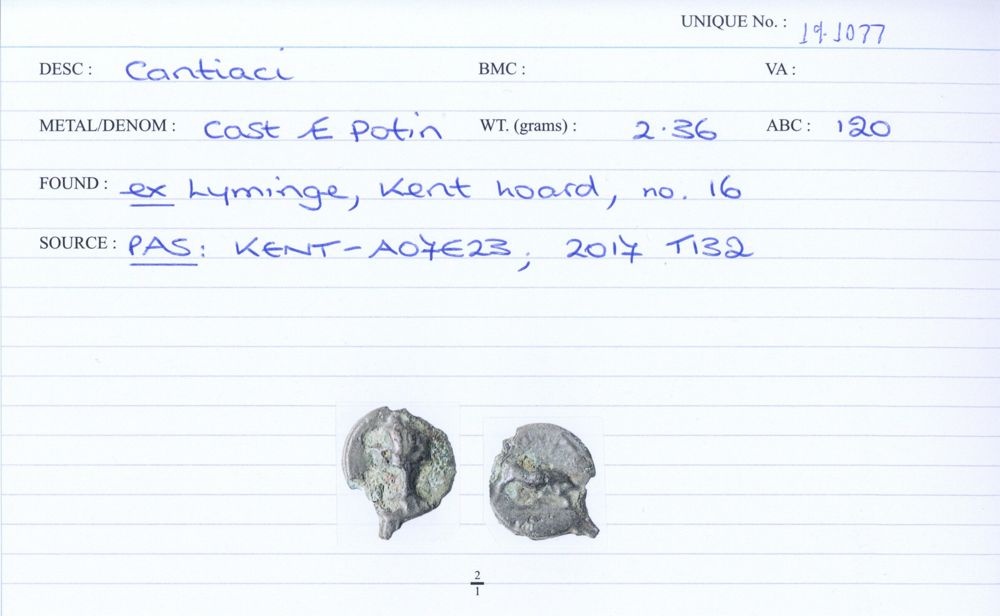 UNIQUE No. : 19.1077
DESC : Cantiaci BMC : VA :
METAL/DENOM : Cast Æ Potin WT. (grams) : 2.36 ABC : 120
FOUND : ex Lyminge, Kent hoard, no. 16
SOURCE : PAS: KENT-A07E23; 2017 T132
2
1